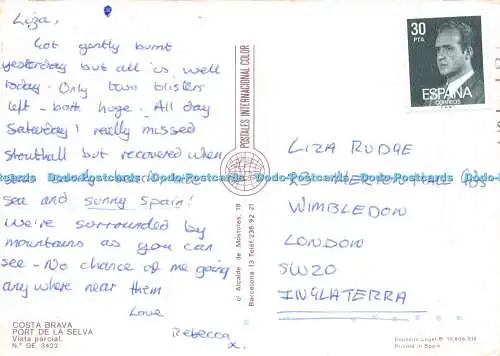 Liza,
Got gently burnt
yesterday but all is well
today. Only two blisters
left - both huge. All day
Saturday I really missed
Southall but recovered when
sea and sunny Spain!
We're surrounded by
mountains as you can
see - No chance of me going
anywhere near them
Love
Rebecca
x.
COSTA BRAVA
PORT DE LA SELVA
Vista parcial.
N.º GE. 3423
POSTALES INTERNACIONAL COLOR
c/ Alcalde de Móstoles, 18
Barcelona-13 Telf. 236-92-21
30
PTA
ESPAÑA
CORREOS
LIZA RUDGE
MERTON HALL RDS
WIMBLEDON
LONDON
SW20
INGLATERRA
Depósito Legal B.
Printed in Spain
Dodo-Postcards Dodo-Postcards Dodo-Postcards Dodo-Postcards